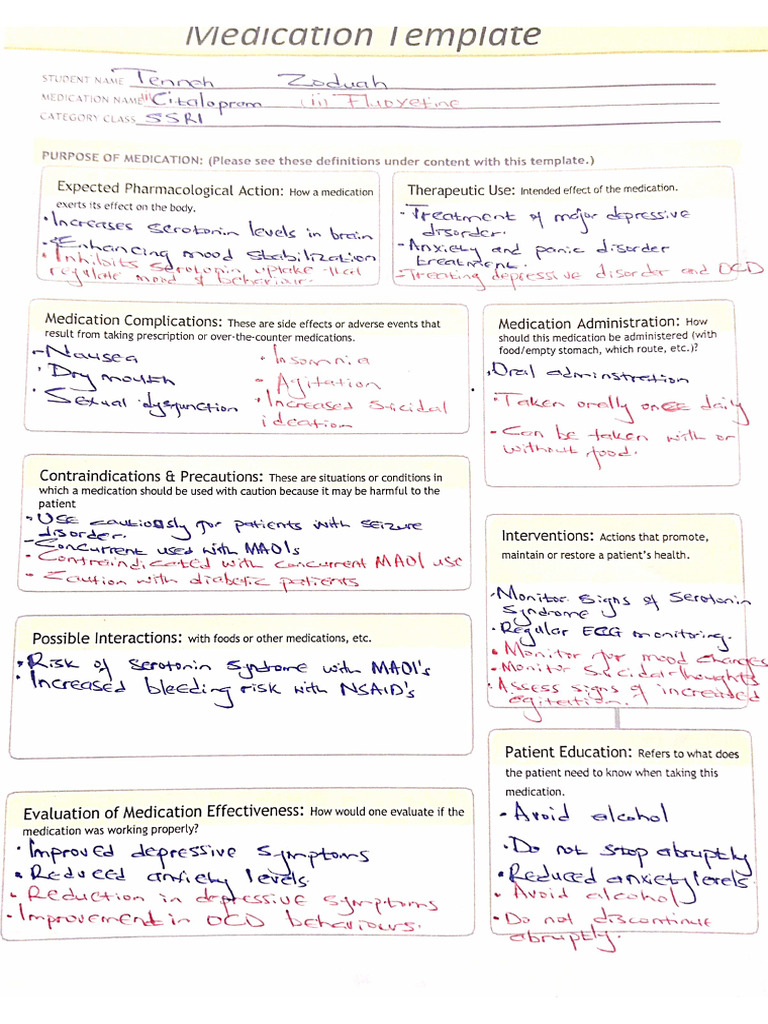 Medication Template
STUDENT NAME Tenneh Zoduah
MEDICATION NAME (i) Citalopram (ii) Fluoxetine
CATEGORY CLASS SSRI
PURPOSE OF MEDICATION: (Please see these definitions under content with this template.)
Expected Pharmacological Action: How a medication
exerts its effect on the body.
• Increases serotonin levels in brain
• Enhancing mood stabilization
• Inhibits serotonin uptake
regulate mood & behaviour.
Therapeutic Use: Intended effect of the medication.
- Treatment of major depressive
disorder.
- Anxiety and panic disorder
treatment.
- Treating depressive disorder and OCD
Medication Complications: These are side effects or adverse events that
result from taking prescription or over-the-counter medications.
- Nausea
• Dry mouth
• Sexual dysfunction
• Insomnia
- Agitation
• Increased suicidal
ideation
Medication Administration: How
should this medication be administered (with
food/empty stomach, which route, etc.)?
• Oral adminstration
• Taken orally once daily
- Can be taken with or
without food.
Contraindications & Precautions: These are situations or conditions in
which a medication should be used with caution because it may be harmful to the
patient
• Use cautiously for patients with seizure
disorder.
- Concurrent used with MAOIs
- Contraindicated with concurrent MAOI use
- Caution with diabetic patients
Interventions: Actions that promote,
maintain or restore a patient's health.
• Monitor signs of Serotonin
Syndrome
• Regular ECG monitoring.
• Monitor for mood changes
• Monitor suicidal thoughts
• Assess signs of increased
agitation.
Possible Interactions: with foods or other medications, etc.
• Risk of serotonin syndrome with MAOI's
• Increased bleeding risk with NSAID's
Patient Education: Refers to what does
the patient need to know when taking this
medication.
• Avoid alcohol
• Do not stop abruptly
• Reduced anxiety levels
• Avoid alcohol
• Do not discontinue
abruptly.
Evaluation of Medication Effectiveness: How would one evaluate if the
medication was working properly?
• Improved depressive symptoms
• Reduced anxiety levels.
• Reduction in depressive symptoms
• Improvement in OCD behaviours.